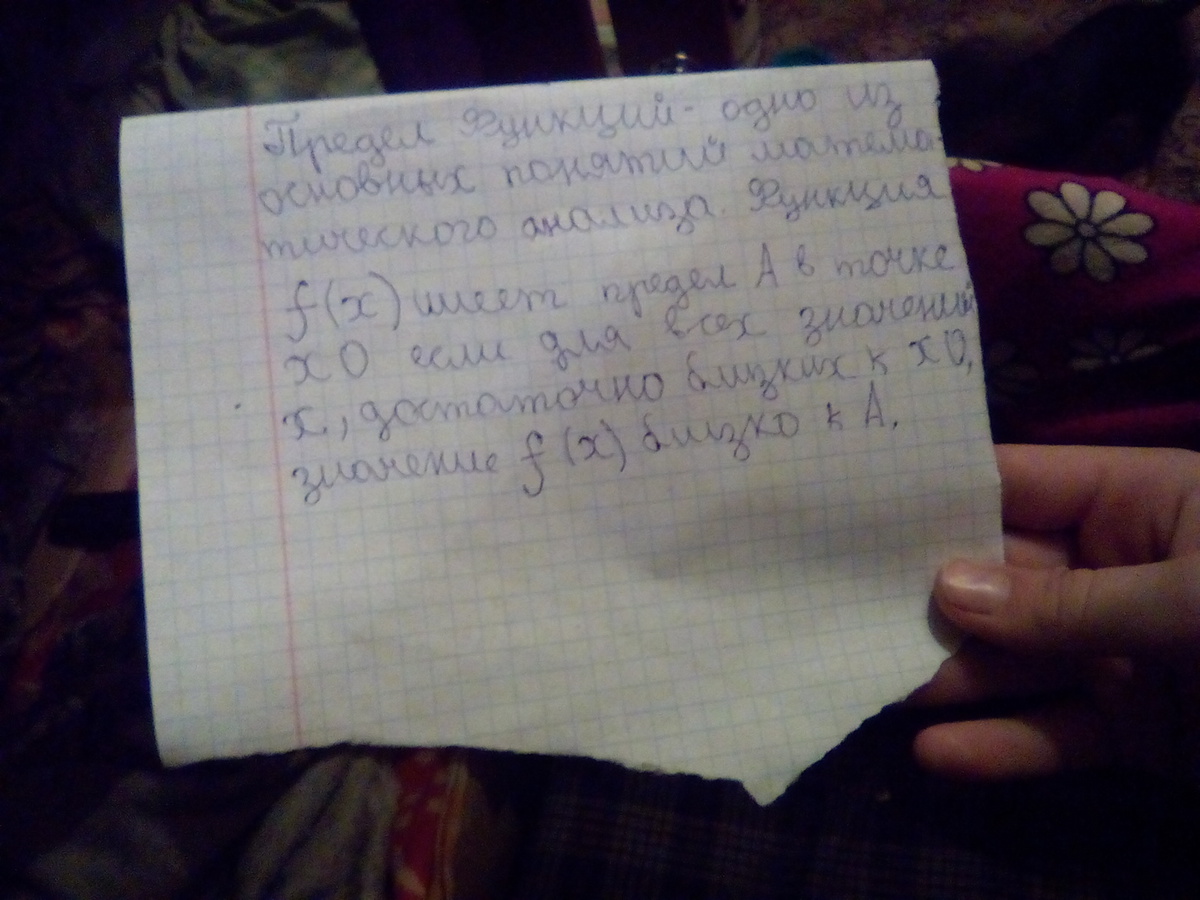 Предел Функций - одно из
основных понятий матема-
тического анализа. Функция
f(x) имеет предел A в точке
x0 если для всех значений
x, достаточно близких к x0,
значение f(x) близко к A.